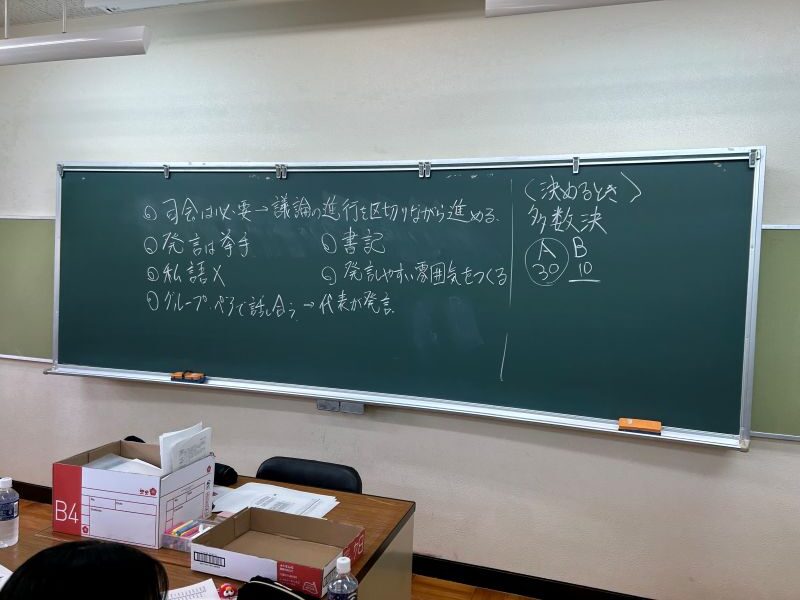 ○司会は必要→議論の進行を区切りながら進める。
○発言は挙手
○書記
○私語×
○発言しやすい雰囲気をつくる
○グループ、ペアで話し合う→代表が発言。
〈決めるとき〉
多数決
A B
30 10
B4